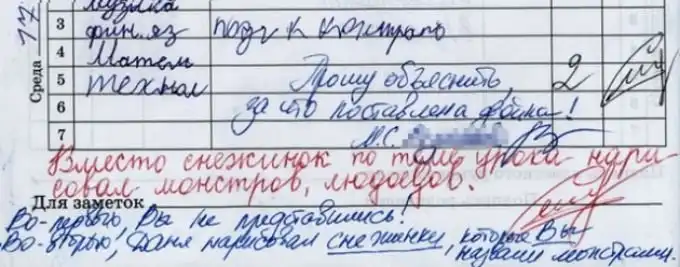 17
Среда
музыка
3 фин.яз подг к контраль
4 Матем
5 технол Прошу объяснить, 2
6 за что поставлена двойка!
7 М.С.
Вместо снежинок по теме урока нари-
совал монстров, людоедов.
Для заметок
Во-первых, Вы не представились!
Во-вторых, Даня нарисовал снежинки, которые Вы
назвали монстрами.